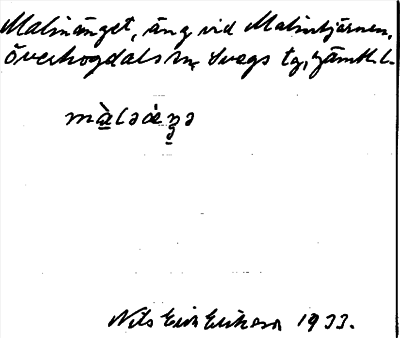 Malmänget, äng vid Malmtjärnen,
Överhogdals sn, Svegs tg, Jämtl. l.
Nils Erik Erikson 1933.